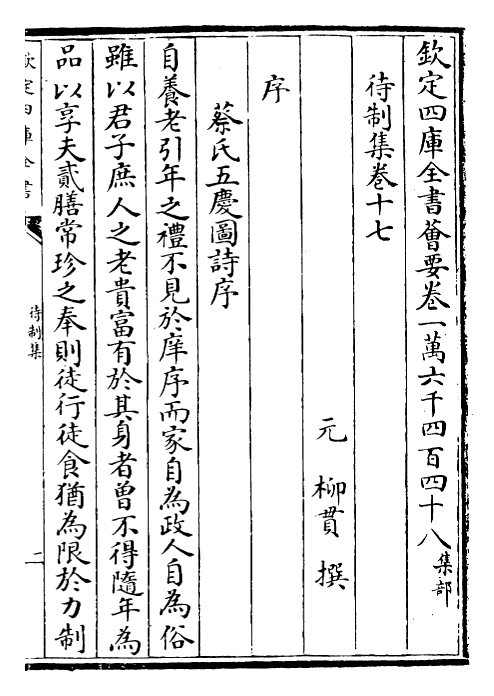 欽定四庫全書薈要卷一萬六千四百四十八集部
待制集卷十七
元 柳貫 撰
序
蔡氏五慶圖詩序
自養老引年之禮不見於庠序而家自為政人自為俗
雖以君子庶人之老貴富有於其身者曾不得隨年為
品以享夫貳膳常珍之奉則徒行徒食猶為限於力制
欽定四庫全書
待制集
二